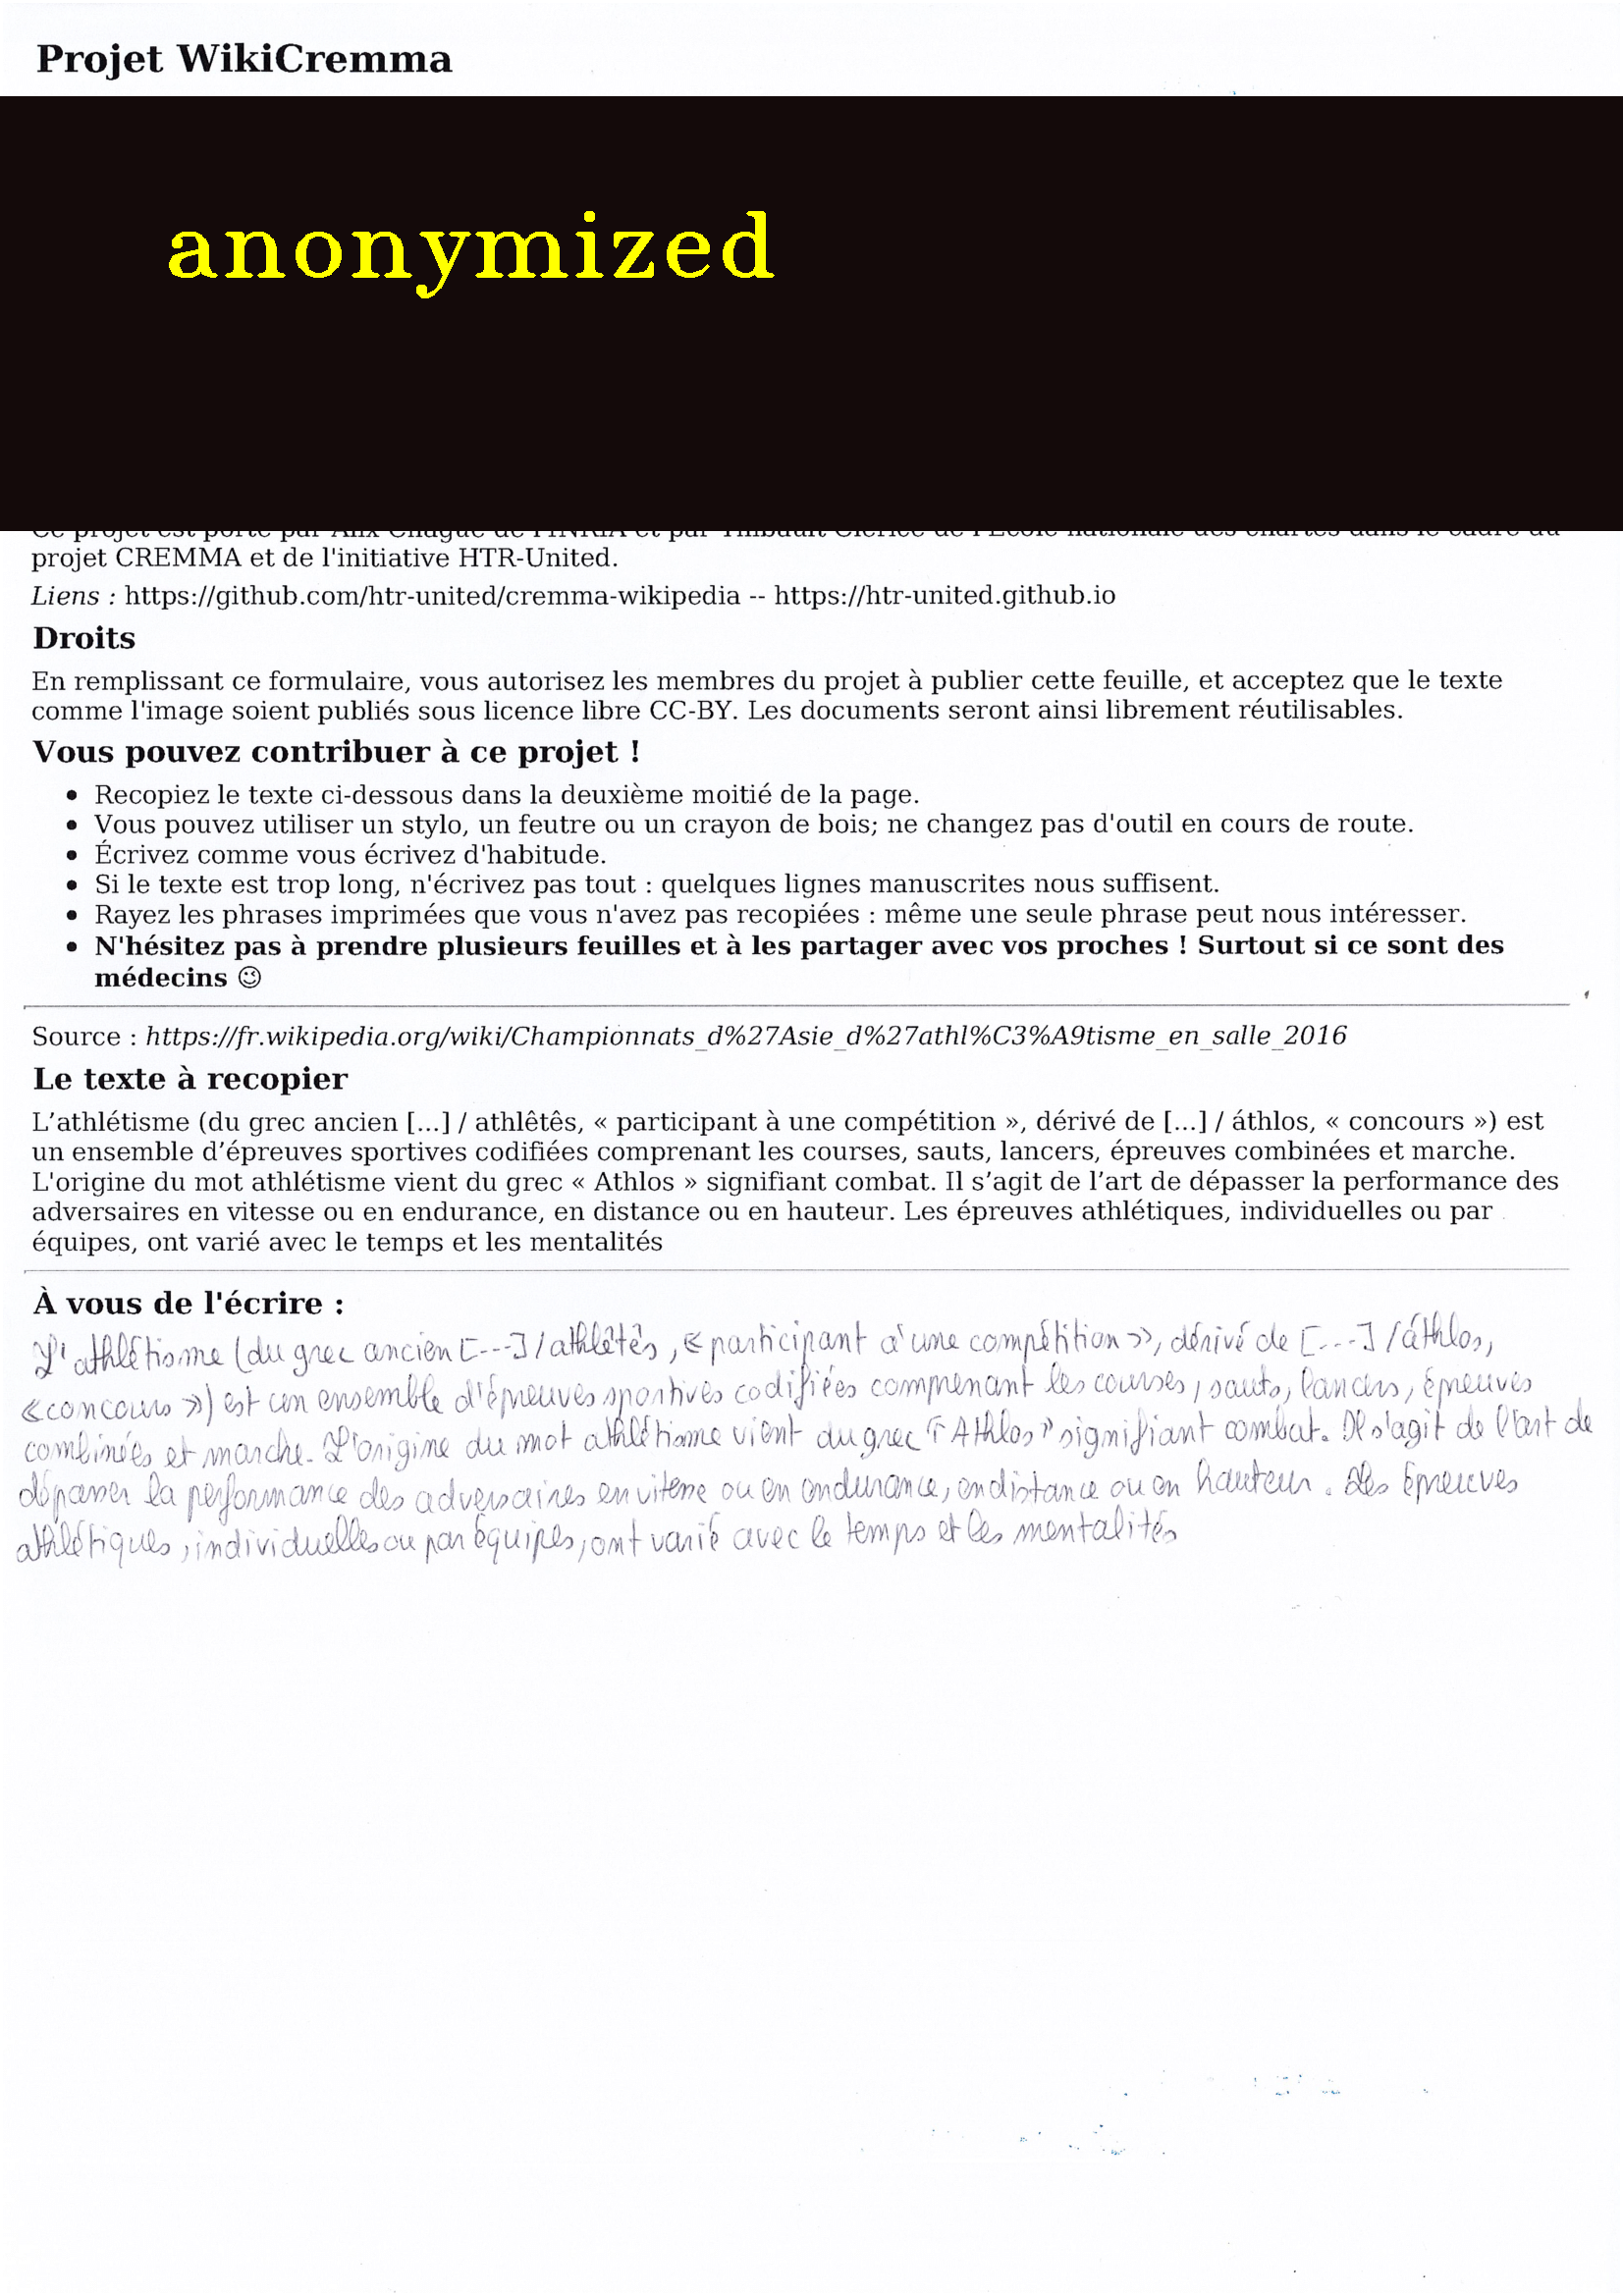 Projet WikiCremma
anonymized
Ce projet est porté par Alix Chagué de l'INRIA et par Thibault Clérice de l'École nationale des chartes dans le cadre du
projet CREMMA et de l'initiative HTR-United.
Liens : https://github.com/htr-united/cremma-wikipedia -- https://htr-united.github.io
Droits
En remplissant ce formulaire, vous autorisez les membres du projet à publier cette feuille, et acceptez que le texte
comme l'image soient publiés sous licence libre CC-BY. Les documents seront ainsi librement réutilisables.
Vous pouvez contribuer à ce projet !
• Recopiez le texte ci-dessous dans la deuxième moitié de la page.
• Vous pouvez utiliser un stylo, un feutre ou un crayon de bois; ne changez pas d'outil en cours de route.
• Écrivez comme vous écrivez d'habitude.
• Si le texte est trop long, n'écrivez pas tout : quelques lignes manuscrites nous suffisent.
• Rayez les phrases imprimées que vous n'avez pas recopiées : même une seule phrase peut nous intéresser.
• N'hésitez pas à prendre plusieurs feuilles et à les partager avec vos proches ! Surtout si ce sont des
médecins 😉
Source : https://fr.wikipedia.org/wiki/Championnats_d%27Asie_d%27athl%C3%A9tisme_en_salle_2016
Le texte à recopier
L’athlétisme (du grec ancien [...] / athlêtês, « participant à une compétition », dérivé de [...] / áthlos, « concours ») est
un ensemble d’épreuves sportives codifiées comprenant les courses, sauts, lancers, épreuves combinées et marche.
L'origine du mot athlétisme vient du grec « Athlos » signifiant combat. Il s’agit de l’art de dépasser la performance des
adversaires en vitesse ou en endurance, en distance ou en hauteur. Les épreuves athlétiques, individuelles ou par
équipes, ont varié avec le temps et les mentalités
À vous de l'écrire :
L'athlétisme (du grec ancien [...] / athlêtês, « participant à une compétition », dérivé de [...] / áthlos,
« concours ») est un ensemble d'épreuves sportives codifiées comprenant les courses, sauts, lancers, épreuves
combinées et marche. L'origine du mot athlétisme vient du grec « Athlos » signifiant combat. Il s'agit de l'art de
dépasser la performance des adversaires en vitesse ou en endurance, en distance ou en hauteur. Les épreuves
athlétiques, individuelles ou par équipes, ont varié avec le temps et les mentalités